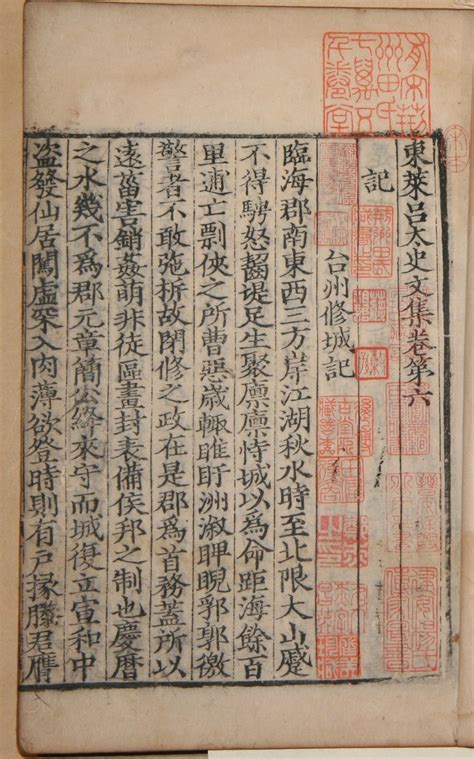 有宋荊州田氏七萬五千卷堂
東萊呂太史文集卷第六
記
台州修城記
臨海郡南東西三方岸江湖秋水時至北限大山蹙
不得騁怒齧堤足生聚廩廩恃城以爲命距海餘百
里逋亡剽俠之所曹惡歲輒睢盱洲溆睥睨郛郭徼
警者不敢弛柝故閉修之政在是郡爲首務蓋所以
遠菑害銷姦萌非徒區畫封表備侯邦之制也慶曆
之水幾不爲郡元章簡公絳來守而城復立宣和中
盜發仙居闖虛罙入肉薄欲登時則有戶掾滕君膺